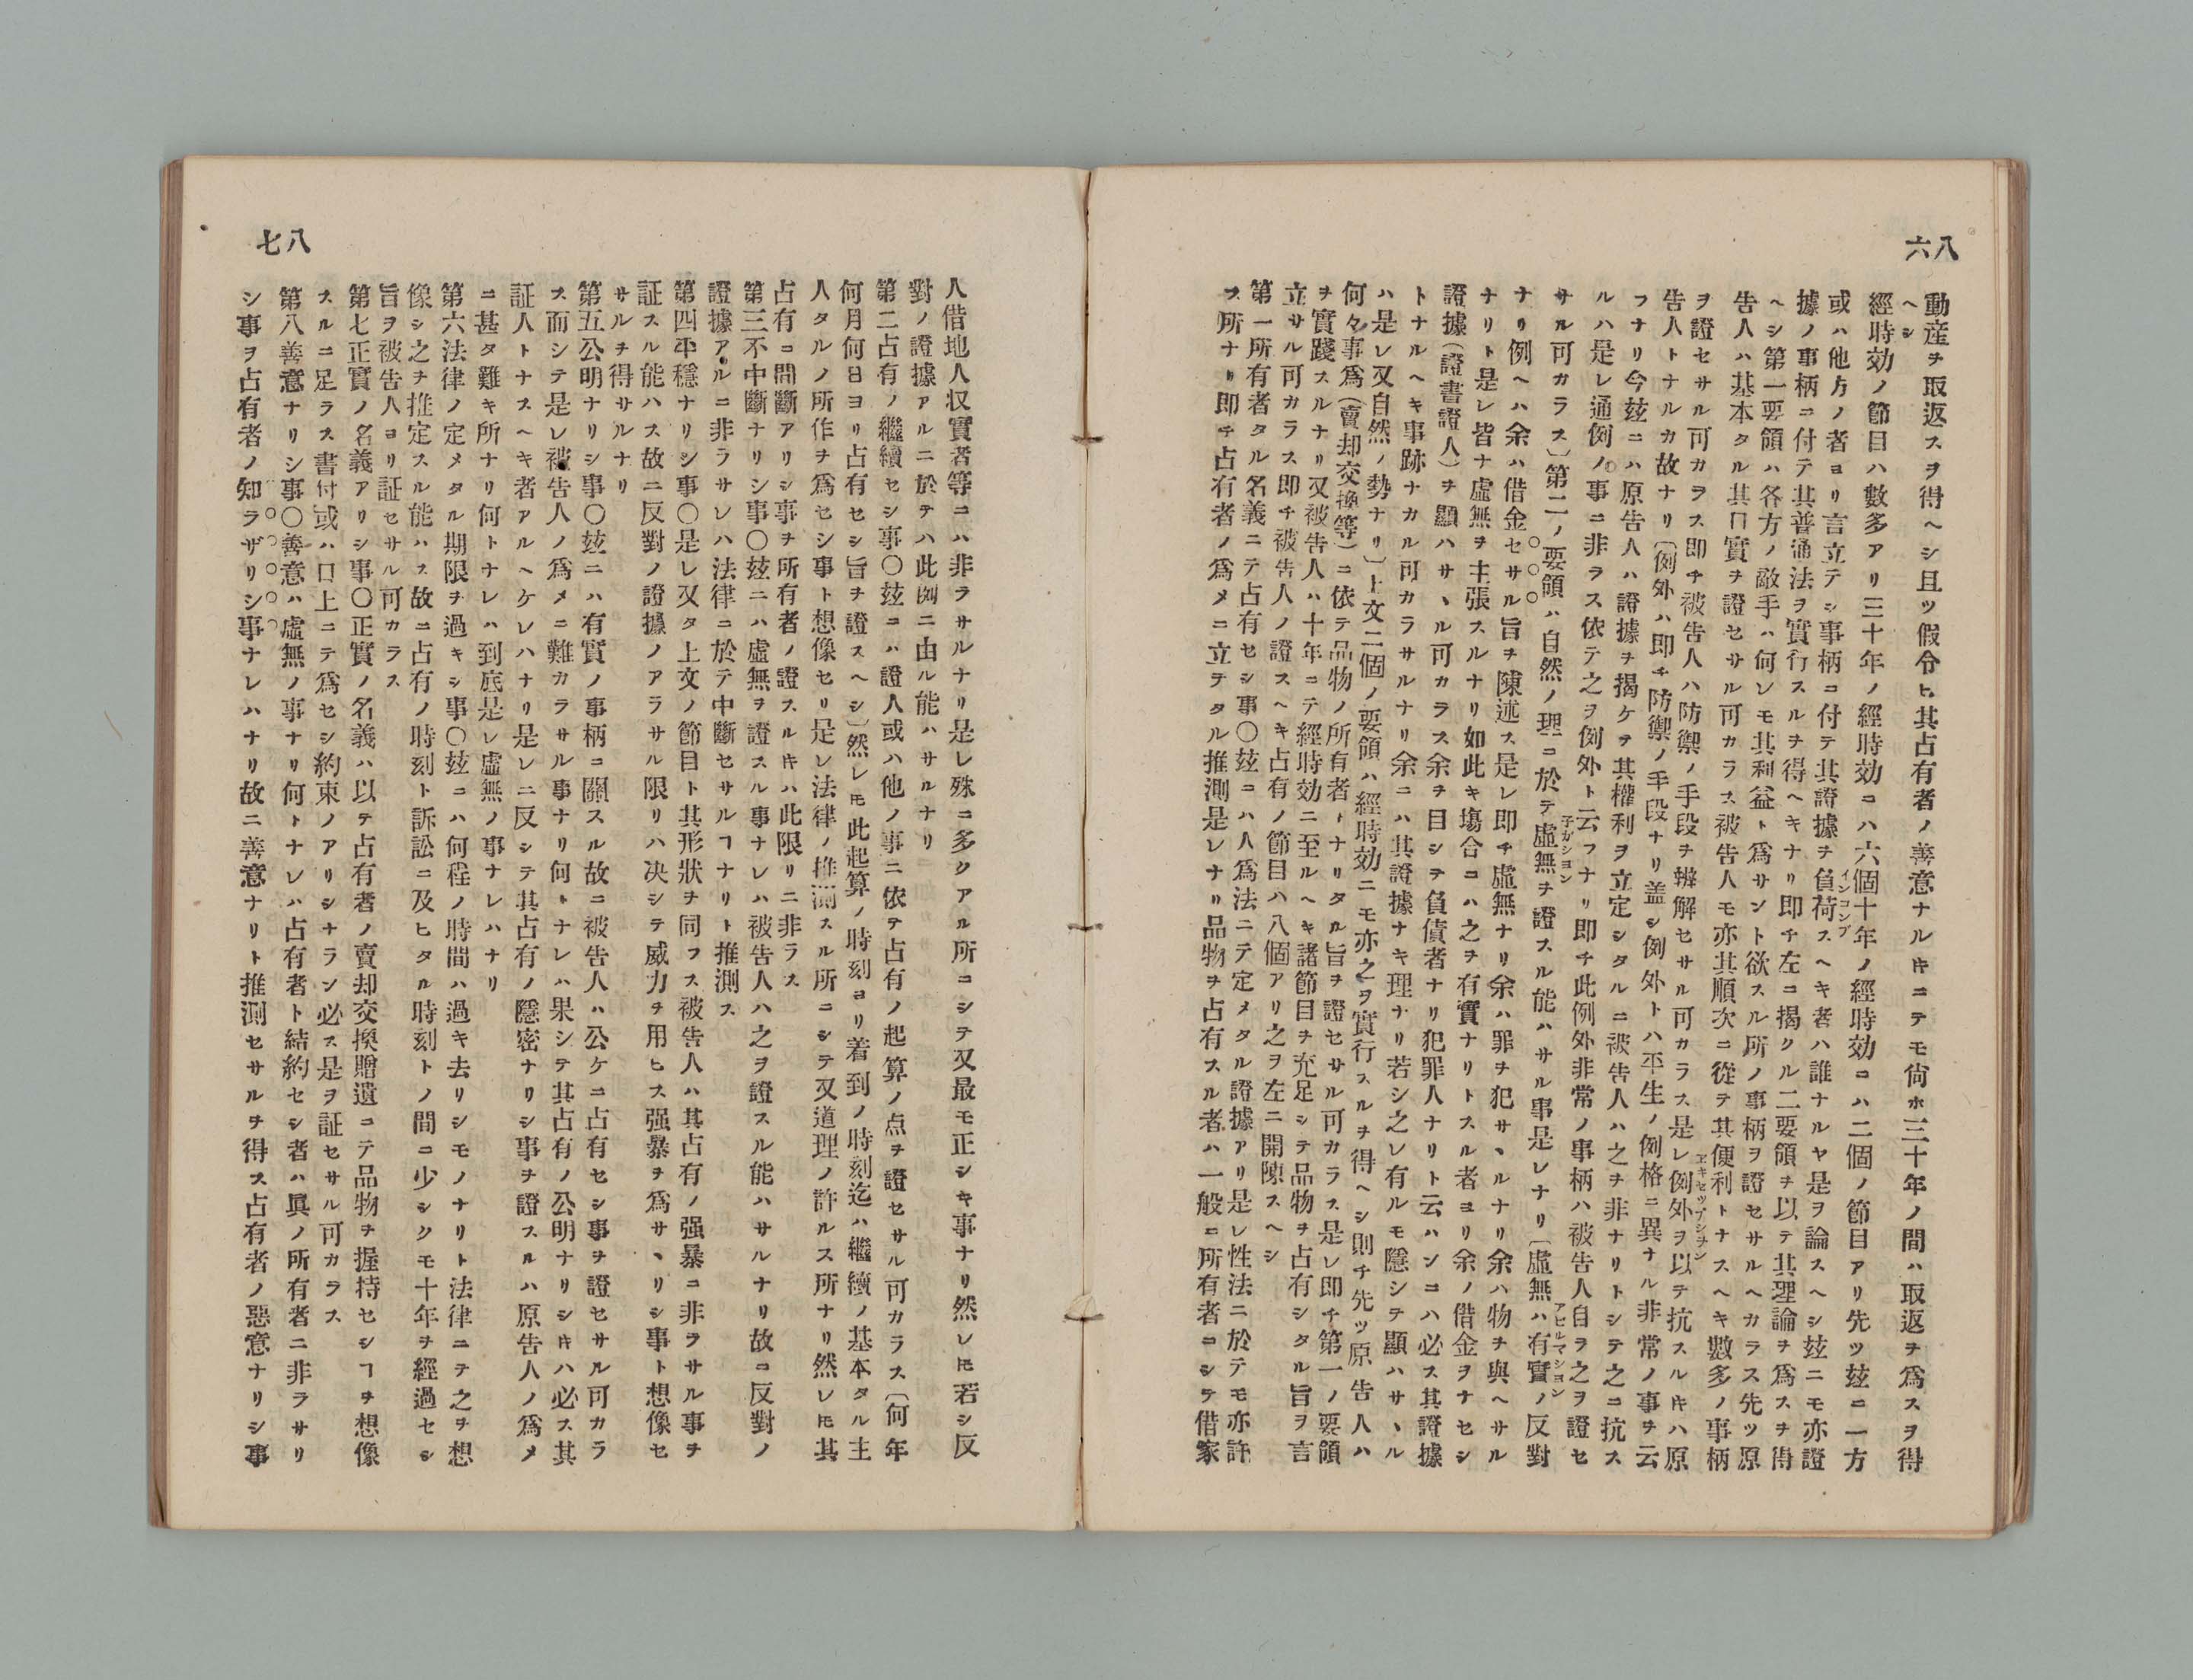 八六
動産ヲ取返スヲ得ヘシ且ツ假令ヒ其占有者ノ善意ナルキニテモ尙ホ三十年ノ間ハ取返ヲ爲スヲ得
ヘシ
經時効ノ節目ハ數多アリ三十年ノ經時効ニハ六個十年ノ經時効ニハ二個ノ節目アリ先ツ玆ニ一方
或ハ他方ノ者ヨリ言立テシ事柄ニ付テ其證據ヲ負荷スヘキ者ハ誰ナルヤ是ヲ論スヘシ玆ニモ亦證
インコンブ
據ノ事柄ニ付テ其普通法ヲ實行スルヲ得ヘキナリ即チ左ニ揭クル二要領ヲ以テ其理論ヲ爲スヲ得
ヘシ第一要領ハ各方ノ敵手ハ何レモ其利益ト爲サント欲スル所ノ事柄ヲ證セサルヘカラス先ツ原
告人ハ基本タル其口實ヲ證セサル可カラス被告人モ亦其順次ニ從テ其便利トナスヘキ數多ノ事柄
ヲ證セサル可カラス即チ被告人ハ防禦ノ手段ヲ辨解セサル可カラス是レ例外ヲ以テ抗スルキハ原
ヱキセツプシヲン
告人トナルカ故ナリ〔例外ハ即チ防禦ノ手段ナリ盖シ例外トハ平生ノ例格ニ異ナル非常ノ事ヲ云
フナリ今玆ニハ原告人ハ證據ヲ揭ケテ其權利ヲ立定シタルニ被告人ハ之ヲ非ナリトシテ之ニ抗ス
ルハ是レ通例ノ事ニ非ラス依テ之ヲ例外ト云フナリ即チ此例外非常ノ事柄ハ被告人自ラ之ヲ證セ
サル可カラス〕第二ノ要領ハ自然ノ理ニ於テ虛無ヲ證スル能ハサル事是レナリ〔虛無ハ有實ノ反對
子ガシヨン
アヒルマシヨン
ナリ例ヘハ余ハ借金セサル旨ヲ陳述ス是レ即チ虛無ナリ余ハ罪ヲ犯サヽルナリ余ハ物ヲ與ヘサル
ナリト是レ皆ナ虛無ヲ主張スルナリ如此キ塲合ニハ之ヲ有實ナリトスル者ヨリ余ノ借金ヲナセシ
證據(證書證人)ヲ顯ハサヽル可カラス余ヲ目シテ負債者ナリ犯罪人ナリト云ハンニハ必ス其證據
トナルヘキ事跡ナカル可カラサルナリ余ニハ其證據ナキ理ナリ若シ之レ有ルモ隱シテ顯ハサヽル
ハ是レ又自然ノ勢ナリ〕上文二個ノ要領ハ經時効ニモ亦之ヲ實行スルヲ得ヘシ則チ先ツ原告人ハ
何々事爲(賣却交換等)ニ依テ品物ノ所有者トナリタル旨ヲ證セサル可カラス是レ即チ第一ノ要領
ヲ實踐スルナリ又被告人ハ十年ニテ經時効ニ至ルヘキ諸節目ヲ充足シテ品物ヲ占有シタル旨ヲ言
立サル可カラス即チ被告人ノ證スヘキ占有ノ節目ハ八個アリ之ヲ左ニ開陳スヘシ
第一所有者タル名義ニテ占有セシ事○玆ニハ人爲法ニテ定メタル證據アリ是レ性法ニ於テモ亦許
ス所ナリ即チ占有者ノ爲メニ立テタル推測是レナリ品物ヲ占有スル者ハ一般ニ所有者ニシテ借家
八七
人借地人収實者等ニハ非ラサルナリ是レ殊ニ多クアル所ニシテ又最モ正シキ事ナリ然レ𪜈若シ反
對ノ證據アルニ於テハ此例ニ由ル能ハサルナリ
第二占有ノ繼續セシ事○玆ニハ證人或ハ他ノ事ニ依テ占有ノ起算ノ点ヲ證セサル可カラス〔何年
何月何日ヨリ占有セシ旨ヲ證スヘシ〕然レ𪜈此起算ノ時刻ヨリ着到ノ時刻迄ハ繼續ノ基本タル主
人タルノ所作ヲ爲セシ事ト想像セリ是レ法律ノ推測スル所ニシテ又道理ノ許ルス所ナリ然レ𪜈其
占有ニ間斷アリシ事ヲ所有者ノ證スルキハ此限リニ非ラス
第三不中斷ナリシ事○玆ニハ虛無ヲ證スル事ナレハ被告人ハ之ヲ證スル能ハサルナリ故ニ反對ノ
證據アルニ非ラサレハ法律ニ於テ中斷セサルヿナリト推測ス
第四平穩ナリシ事○是レ又タ上文ノ節目ト其形狀ヲ同フス被告人ハ其占有ノ强暴ニ非ラサル事ヲ
証スル能ハス故ニ反對ノ證據ノアラサル限リハ决シテ威力ヲ用ヒス强暴ヲ爲サヽリシ事ト想像セ
サルヲ得サルナリ
第五公明ナリシ事○玆ニハ有實ノ事柄ニ關スル故ニ被告人ハ公ケニ占有セシ事ヲ證セサル可カラ
ス而シテ是レ被告人ノ爲メニ難カラサル事ナリ何トナレハ果シテ其占有ノ公明ナリシキハ必ス其
証人トナスヘキ者アルヘケレハナリ是レニ反シテ其占有ノ隱密ナリシ事ヲ證スルハ原告人ノ爲メ
ニ甚タ難キ所ナリ何トナレハ到底是レ虛無ノ事ナレハナリ
第六法律ノ定メタル期限ヲ過キシ事○玆ニハ何程ノ時間ハ過キ去リシモノナリト法律ニテ之ヲ想
像シ之ヲ推定スル能ハス故ニ占有ノ時刻ト訴訟ニ及ヒタル時刻トノ間ニ少シクモ十年ヲ經過セシ
旨ヲ被告人ヨリ証セサル可カラス
第七正實ノ名義アリシ事○正實ノ名義ハ以テ占有者ノ賣却交換贈遺ニテ品物ヲ握持セシヿヲ想像
スルニ足ラス書付或ハ口上ニテ爲セシ約束ノアリシナラン必ス是ヲ証セサル可カラス
第八善意ナリシ事○善意ハ虛無ノ事ナリ何トナレハ占有者ト結約セシ者ハ眞ノ所有者ニ非ラサリ
シ事ヲ占有者ノ知ラザリシ事ナレハナリ故ニ善意ナリト推測セサルヲ得ス占有者ノ惡意ナリシ事